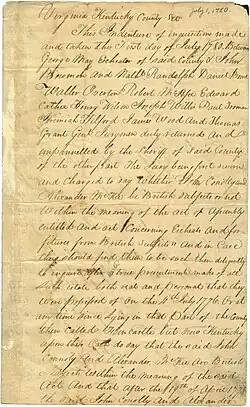 July 1, 1780.
Virginia Kentucky County
This Indenture of inquisition made
and taken this First day of July 1780. Between
George May Escheator of said County &
and Nath. Randolph Daniel
Walter Robert Edward
Henry Wilson Joseph Willis Paul
Jeremiah Tilford James Wood and Thomas
Grant Gent. Jurymen duly returned and
impannelled by the Sheriff of said County
of the other part. The Jury being first sworn
and charged to say Whether John Conolly and
Alexander McKee be British Subjects or not
Within the meaning of the act of Assembly
entitled and act Concerning Escheats and for
feitures from British Subjects and in Case
they should find them to be such then diligently
to enquire
both real and personal that they
were possessed of on the 4th July 1776. Or at
any time since lying in that Part of the County
then called Fincastle but now Kentucky
upon their Oath do say that the said John
Connolly and Alexander McKee are British
Subjects Within the meaning of the said
Act. And that after the 19th of April 1775
the said John Conolly and Alexander